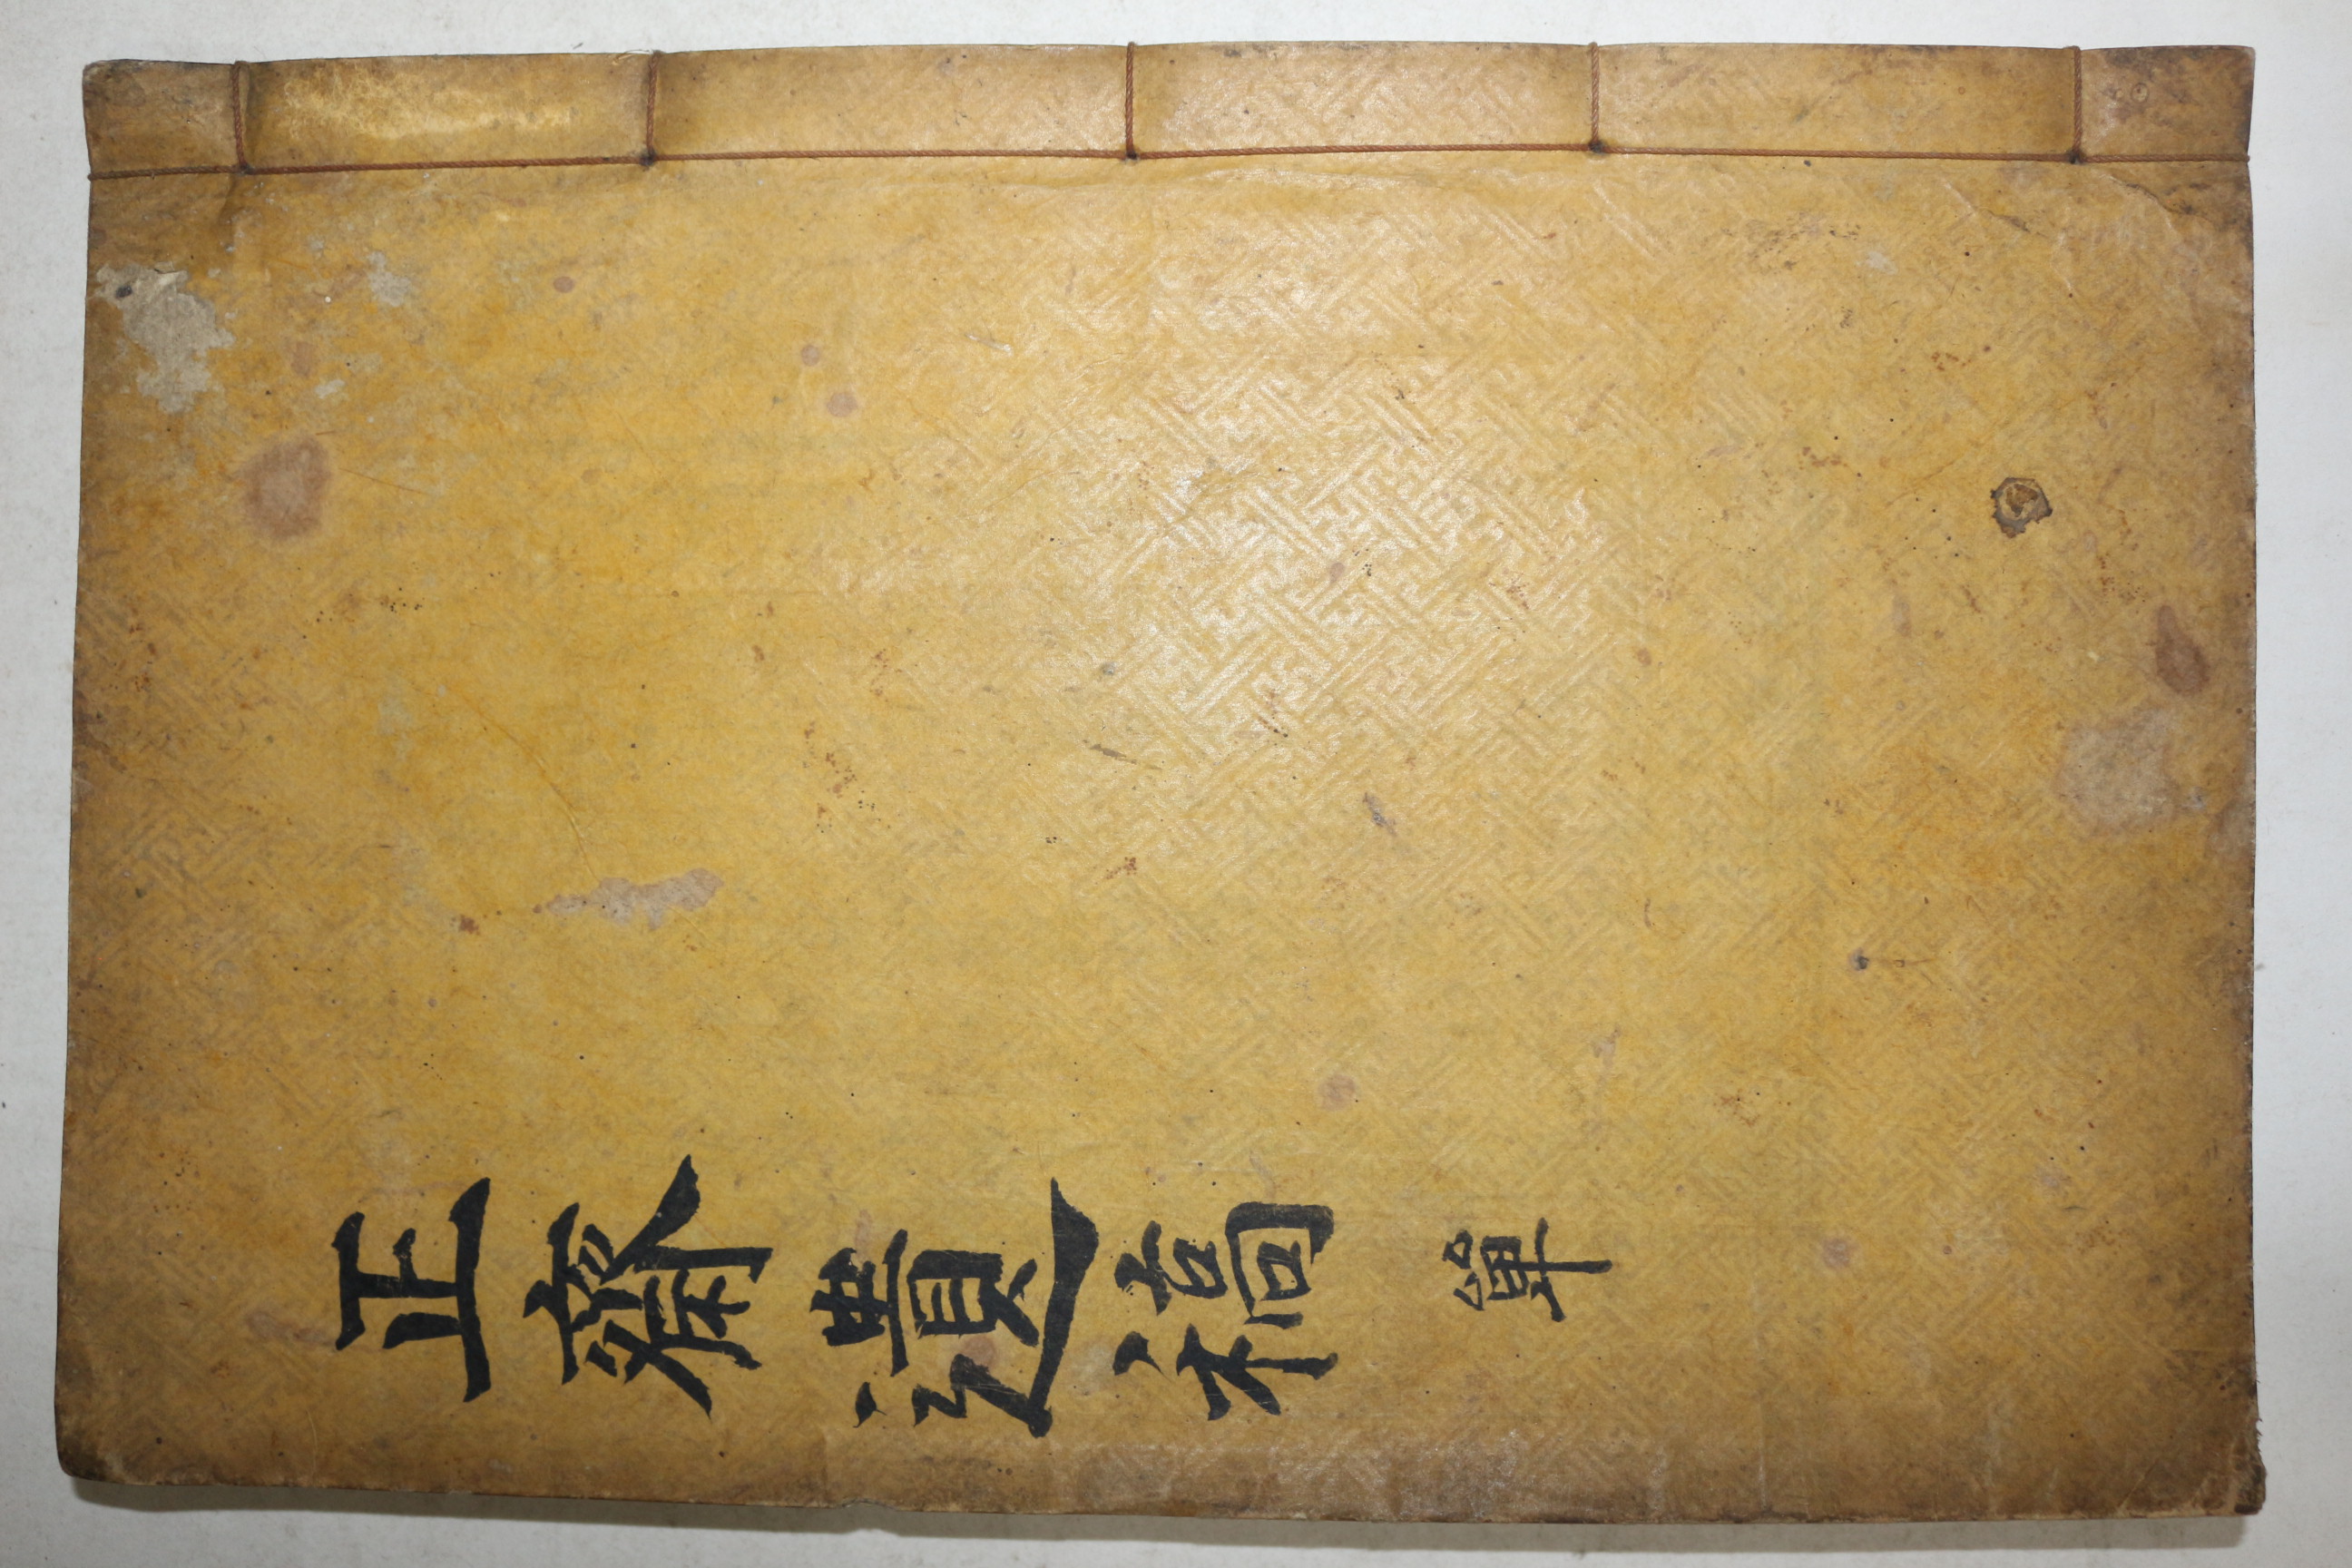 正齋遺稿 單